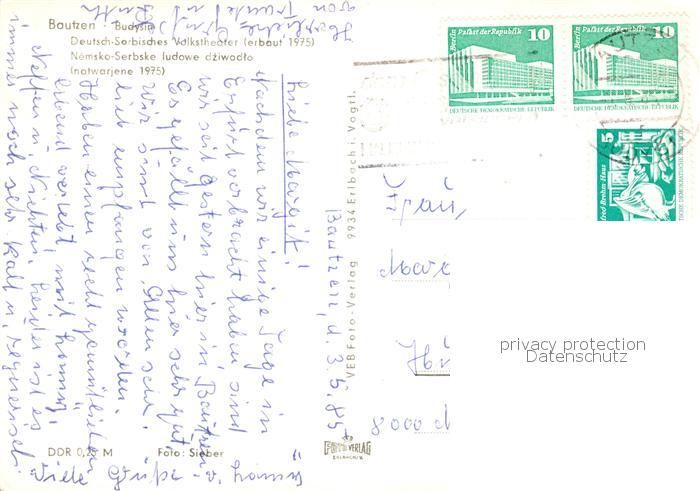 Bautzen - Budyšin
Deutsch-Sorbisches Volkstheater (erbaut 1975)
Němsko-Serbske ludowe dźiwadło
(natwarjene 1975)
Bautzen, d. 3.5.85
Liebe Margit!
Nachdem wir einige Tage in
Erfurt verbracht haben sind
wir seit gestern hier in Bautzen.
Es gefällt uns hier sehr gut,
wir sind von Allen sehr
lieb empfangen worden.
Haben einen recht gemütlichen
Abend verlebt mit
Neffen u. Nichten, leider ist es
immer noch sehr kalt u. regnerisch.
Viele Grüße
Herzliche Grüße
von
DDR 0,25 M
Foto: Sieber
VEB Foto-Verlag 9934 Erlbach Vogtl.
FOTO VERLAG
ERLBACH/V.
Berlin Palast der Republik 10
DEUTSCHE DEMOKRATISCHE REPUBLIK
Berlin Palast der Republik 10
DEUTSCHE DEMOKRATISCHE REPUBLIK
5
Alfred Brehm Haus
Frau
8000
privacy protection
Datenschutz